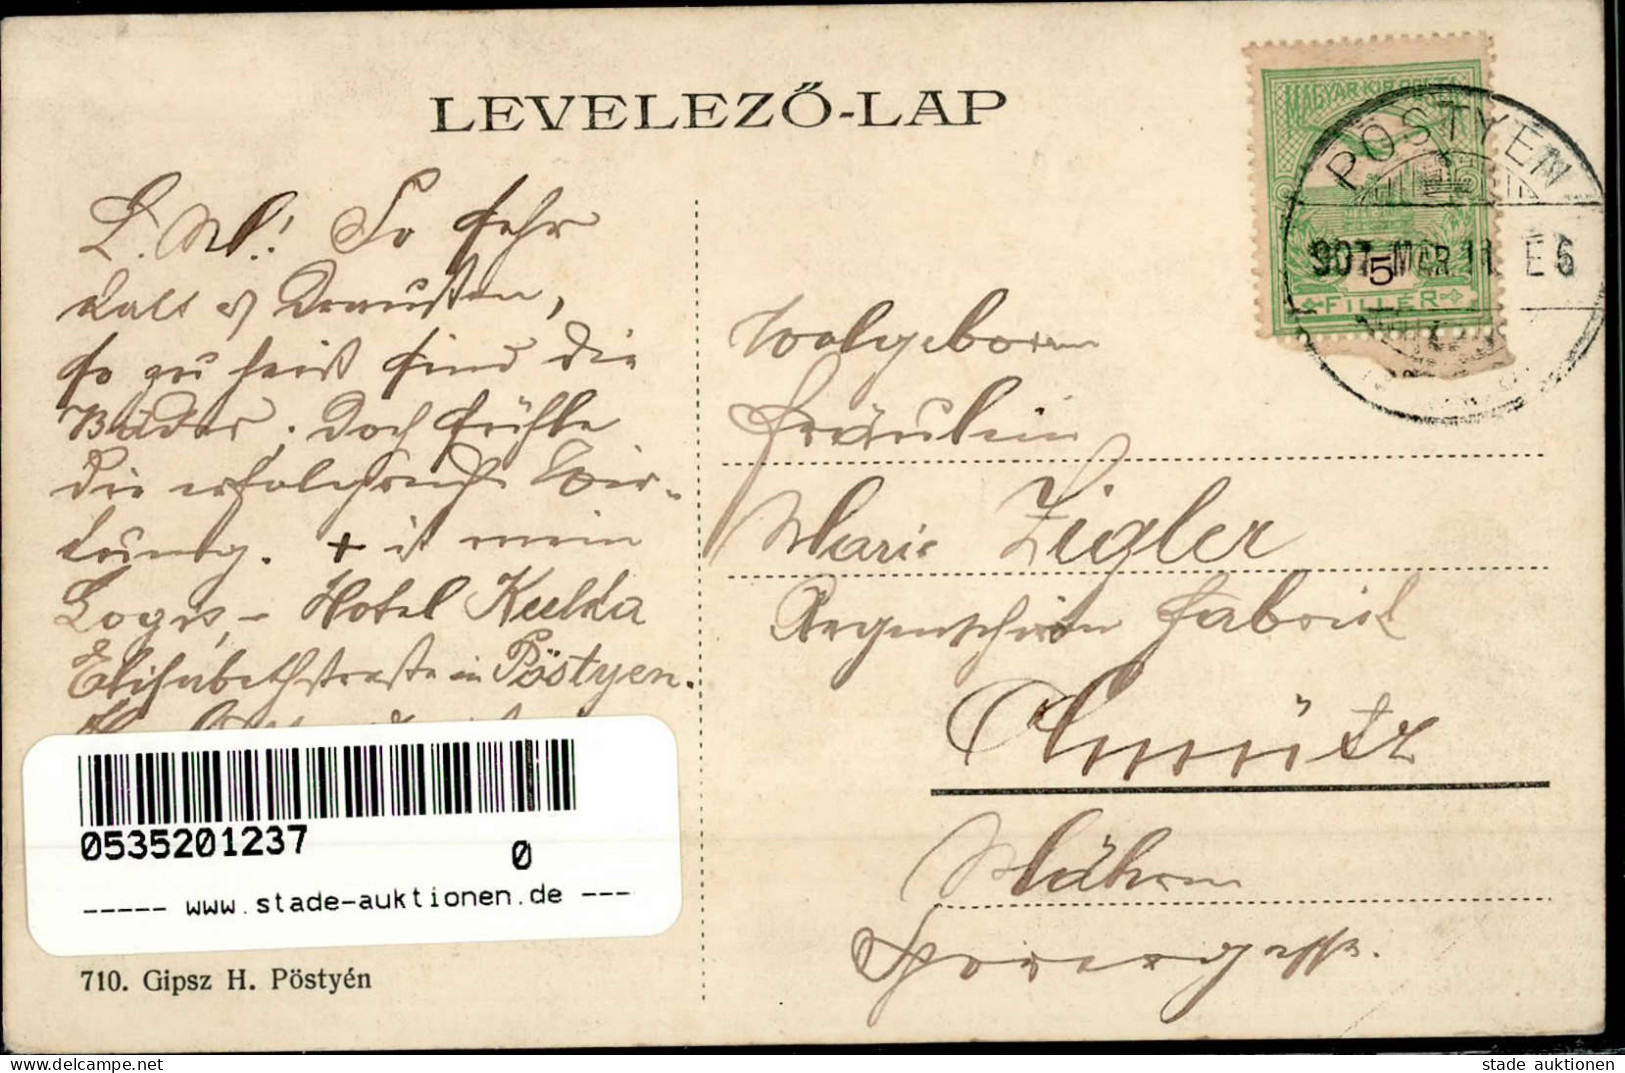 LEVELEZŐ-LAP
MAGYAR KIR. POSTA
5
FILLÉR
PÖSTYÉN
907 MAR 11. E 6
L. Ml! So sehr
kalt es Draußen,
so zu heiß sind die
Bäder. Doch fühle
die erfolgreiche Wir-
kung. + ist mein
Logis, - Hotel Kulka
Elisabethstraße in Pöstyen.
Wolgeboren
Fräulein
Marie Zigler
Regenschirm Fabrik
Olmütz
Mähren
gasse.
0535201237
0
----- www.stade-auktionen.de ---
710. Gipsz H. Pöstyén
stade auktionen